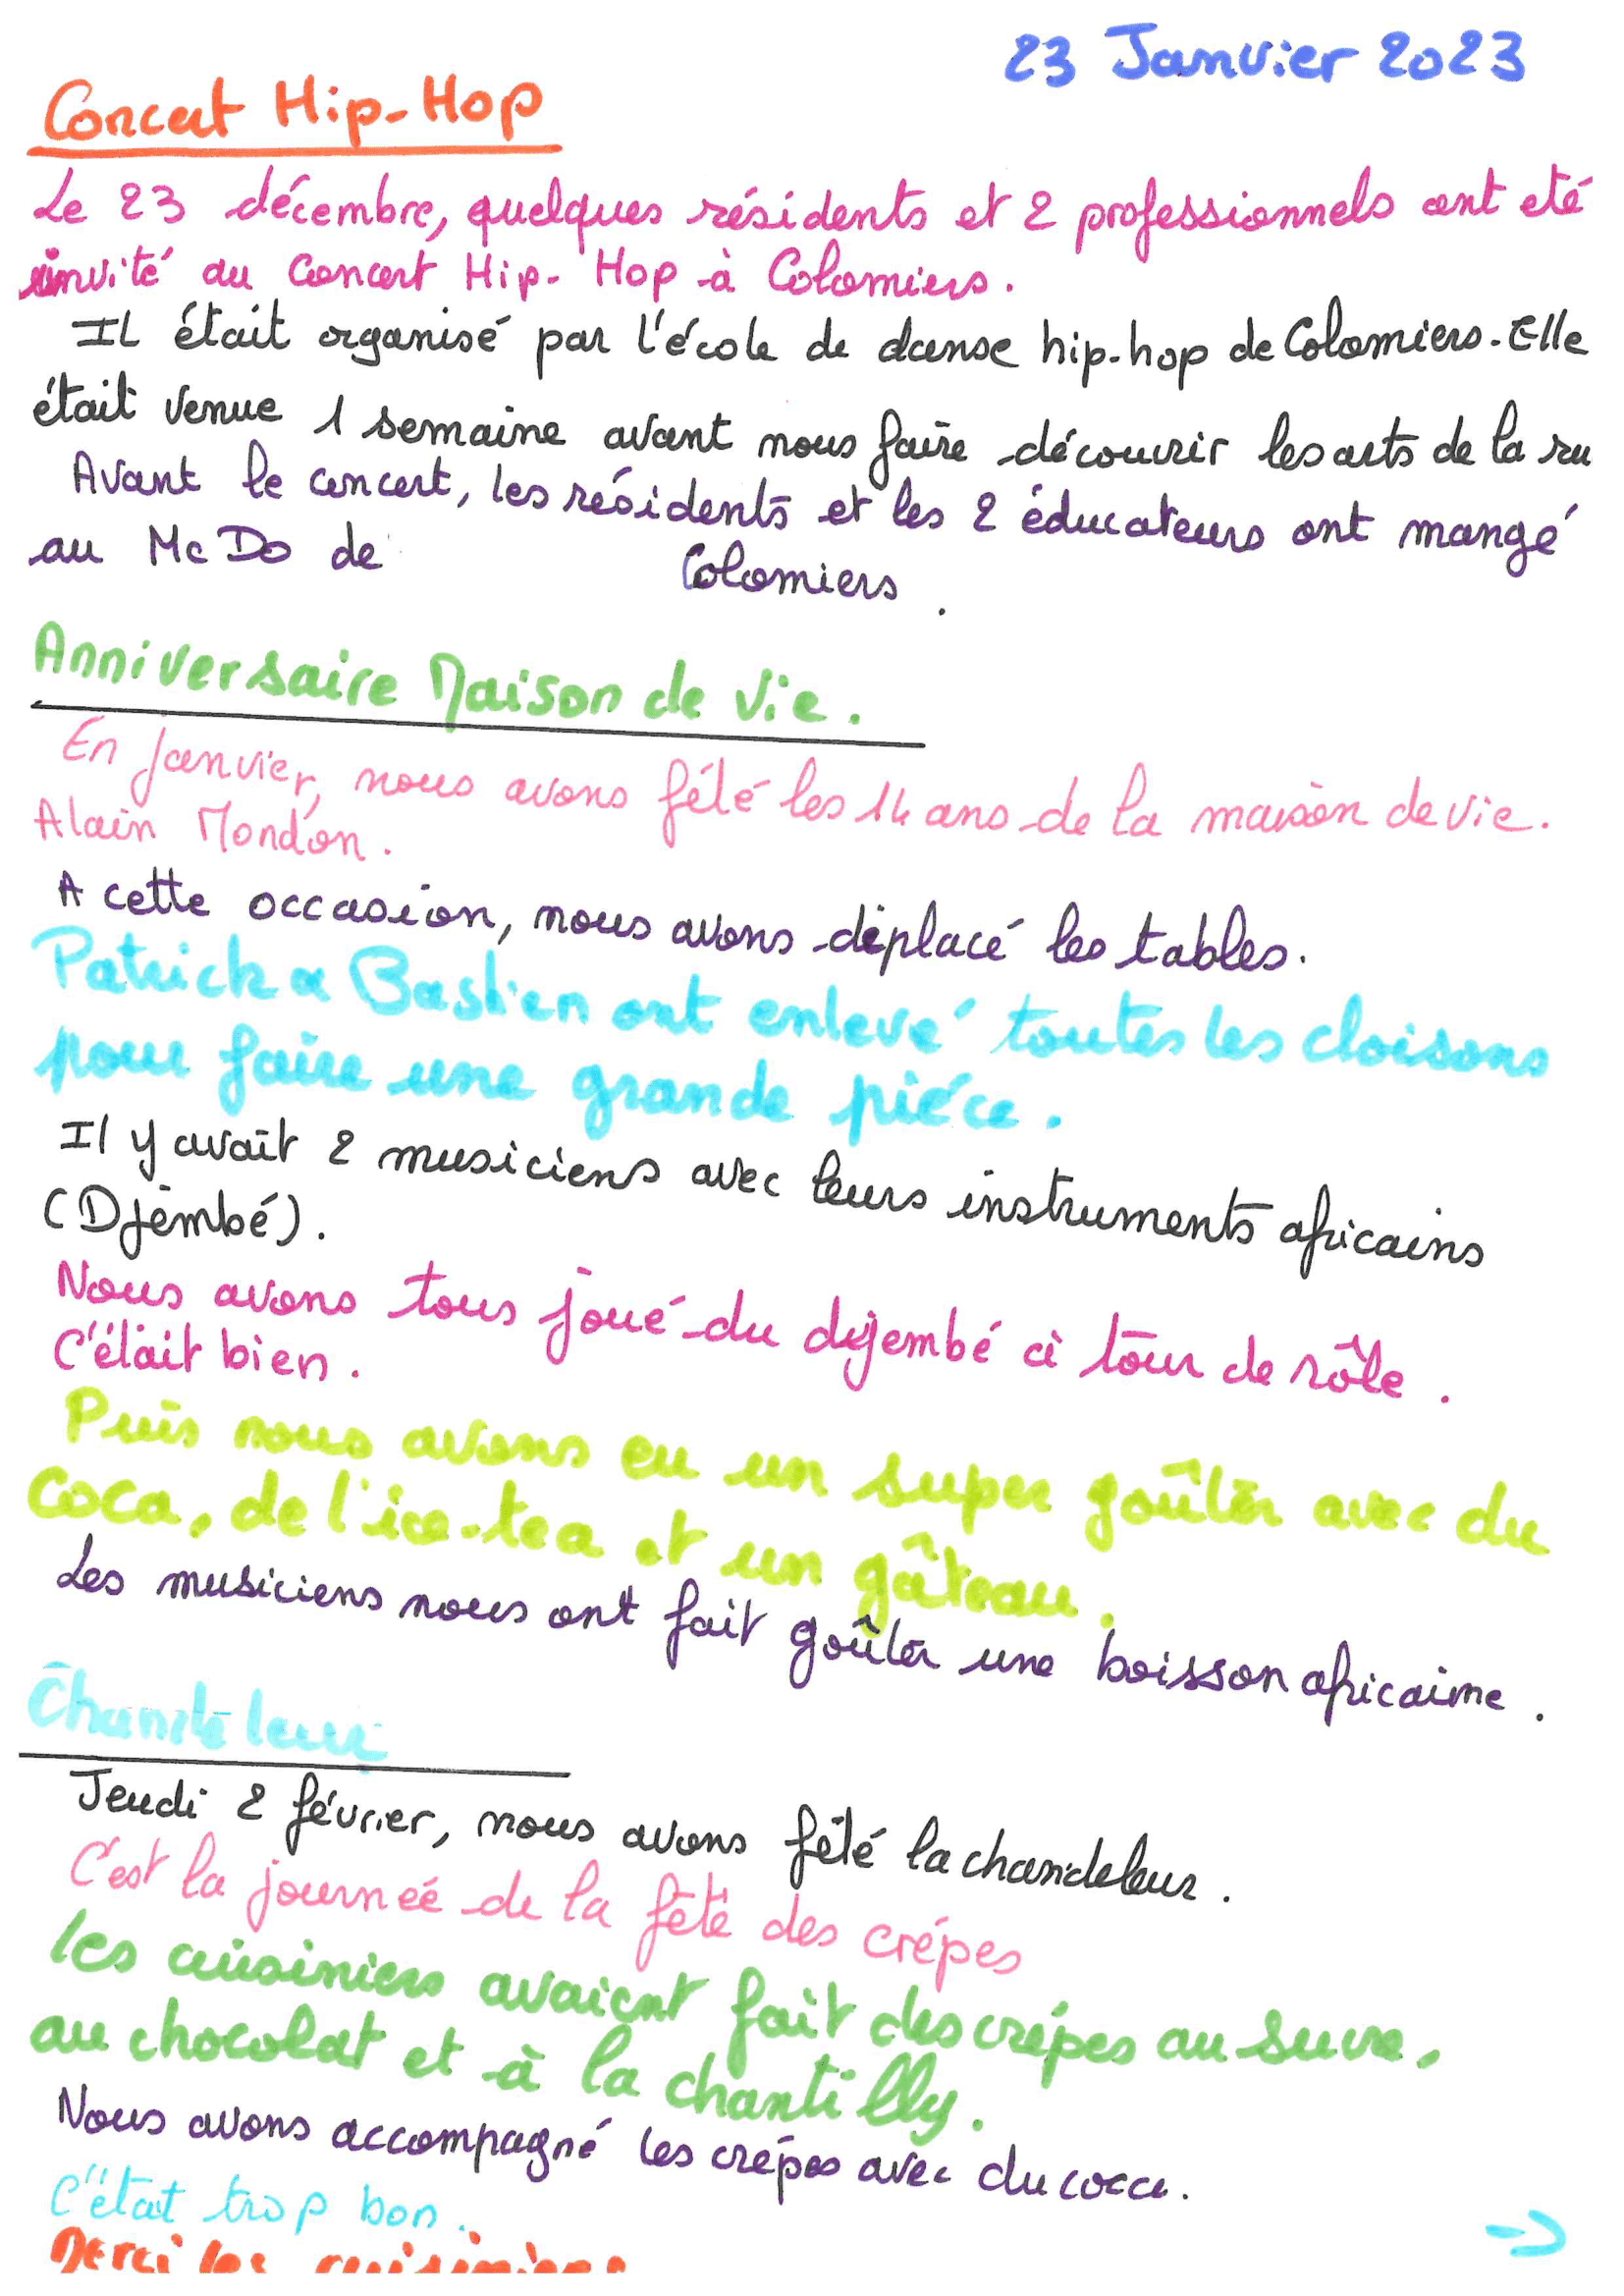 23 Janvier 2023
Concert Hip-Hop
Le 23 décembre, quelques résidents et 2 professionnels ont eté
invité au Concert Hip-Hop à Colomiers.
IL était organisé par l'école de danse hip-hop de Colomiers. Elle
était venue 1 semaine avant nous faire découvrir les arts de la ru
Avant le concert, les résidents et les 2 éducateurs ont mangé
au Mc Do de Colomiers.
Anniversaire Maison de Vie.
En janvier, nous avons fêté les 14 ans de la maison de vie.
Alain Mondon.
A cette occasion, nous avons déplacé les tables.
Patrick & Bastien ont enlevé toutes les cloisons
pour faire une grande piéce.
Il y avait 2 musiciens avec leurs instruments africains
(Djembé).
Nous avons tous joué du dijembé à tour de rôle.
C'était bien.
Puis nous avons eu un super goûter avec du
Coca, de l'ice-tea et un gâteau.
Les musiciens nous ont fait goûter une boisson africaine.
Chandeleur
Jeudi 2 février, nous avons fêté la chandeleur.
C'est la journeé de la fête des crépes
les cuisiniers avaient fait des crépes au sucre,
au chocolat et à la chantilly.
Nous avons accompagné les crépes avec du coca.
C'était trop bon.
Merci les cuisiniers
→